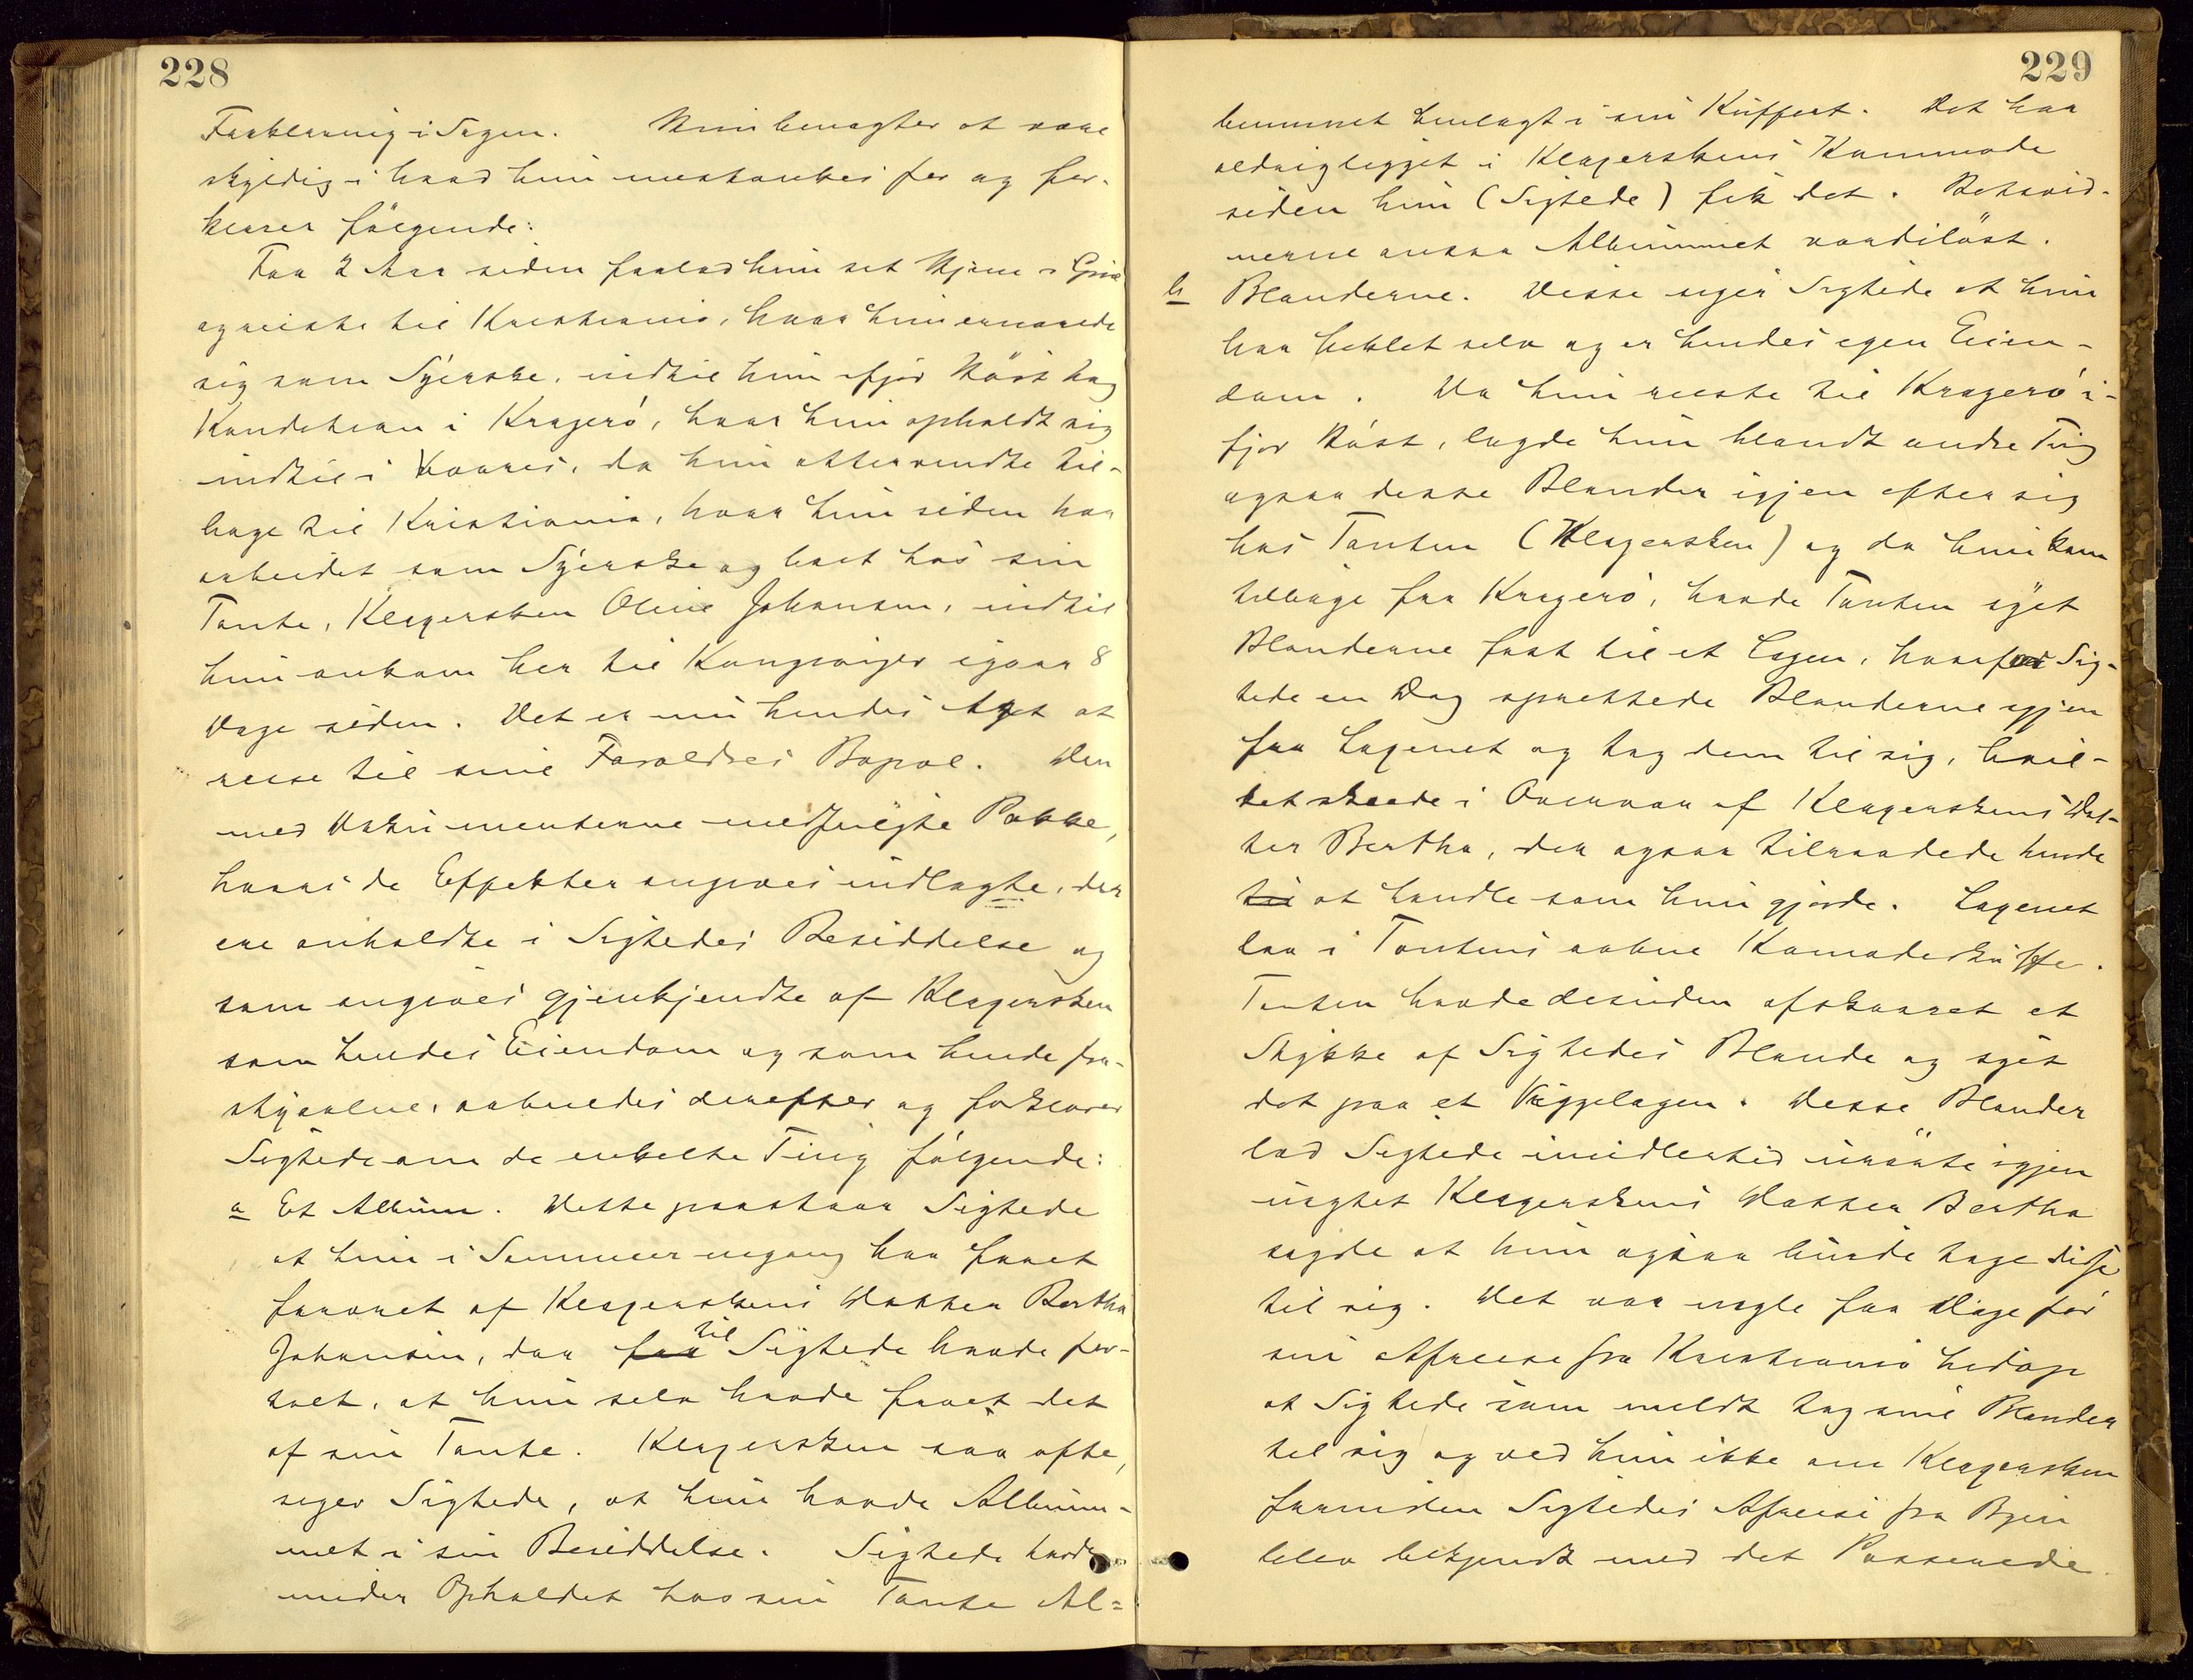 228
Forklaring i Sagen. Hun benægter at være
skyldig i hvad hun mistænkes for og for-
klarer følgende:
For 2 Aar siden forlod hun sit Hjem i Grue
og reiste til Kristiania, hvor hun ernærede
sig som Syerske, indtil hun ifjor Høst tog
Kondition i Kragerø, hvor hun opholdt sig
indtil i Vaares, da hun attervendte til-
bage til Kristiania, hvor hun siden har
arbeidet som Syerske og boet hos sin
Tante, Klagersken Oline Johansen, indtil
hun ankom her til Kongsvinger igaar 8
Dage siden. Det er nu hendes Agt at
reise til sine Forældres Bopæl. Den
med Dokumenterne medfulgte Pakke,
hvori de Effekter angives indlagte, der
ere anholdte i Sigtedes Besiddelse og
som angives gjenkjendte af Klagersken
som hendes Eiendom og som hende fra-
stjaalne, aabnedes derefter og forklarer
Sigtede om de enkelte Ting følgende:
a Et Album. Dette paastaar Sigtede
at hun i Sommer engang har faaet
foræret af Klagerskens Datter Bertha
Johansen, der til Sigtede havde for-
talt, at hun selv havde faaet det
af sin Tante. Klagersken saa ofte,
siger Sigtede, at hun havde Albu-
met i sin Besiddelse. Sigtede havde
under Opholdet hos sin Tante Al=
229
bummet henlagt i sin Kuffert. Det har
aldrig ligget i Klagerskens Kommode
siden hun (Sigtede) fik det. Retsvid-
nerne ansaa Albummet værdiløst.
b Blonderne. Disse siger Sigtede at hun
har heklet selv og er hendes egen Eien-
dom. Da hun reiste til Kragerø i-
fjor Høst, lagde hun blandt andre Ting
ogsaa disse Blonder igjen efter sig
hos Tanten (Klagersken) og da hun kom
tilbage fra Kragerø, havde Tanten syet
Blonderne fast til et Lagen, hvorfor Sig-
tede en Dag sprættede Blonderne igjen
fra Lagenet og tog dem til sig, hvil-
ket skeede i Overvær af Klagerskens Dat-
ter Bertha, der ogsaa tilraadede hende
til at handle som hun gjorde. Lagenet
laa i Tantens aabne Komodeskuffe.
Tanten havde desuden afskaaret et
Stykke af Sigtedes Blonde og syet
det paa et Vuggelagen. Disse Blonder
lod Sigtede imidlertid urørte igjen
uagtet Klagerskens Datter Bertha
sagde at hun ogsaa burde tage disse
til sig. Det var nogle faa Dage før
sin Afreise fra Kristiania hidop
at Sigtede som meldt tog sine Blonder
til sig og ved hun ikke om Klagersken
forinden Sigtedes Afreise fra Byen
blev bekjendt med det Passerede.